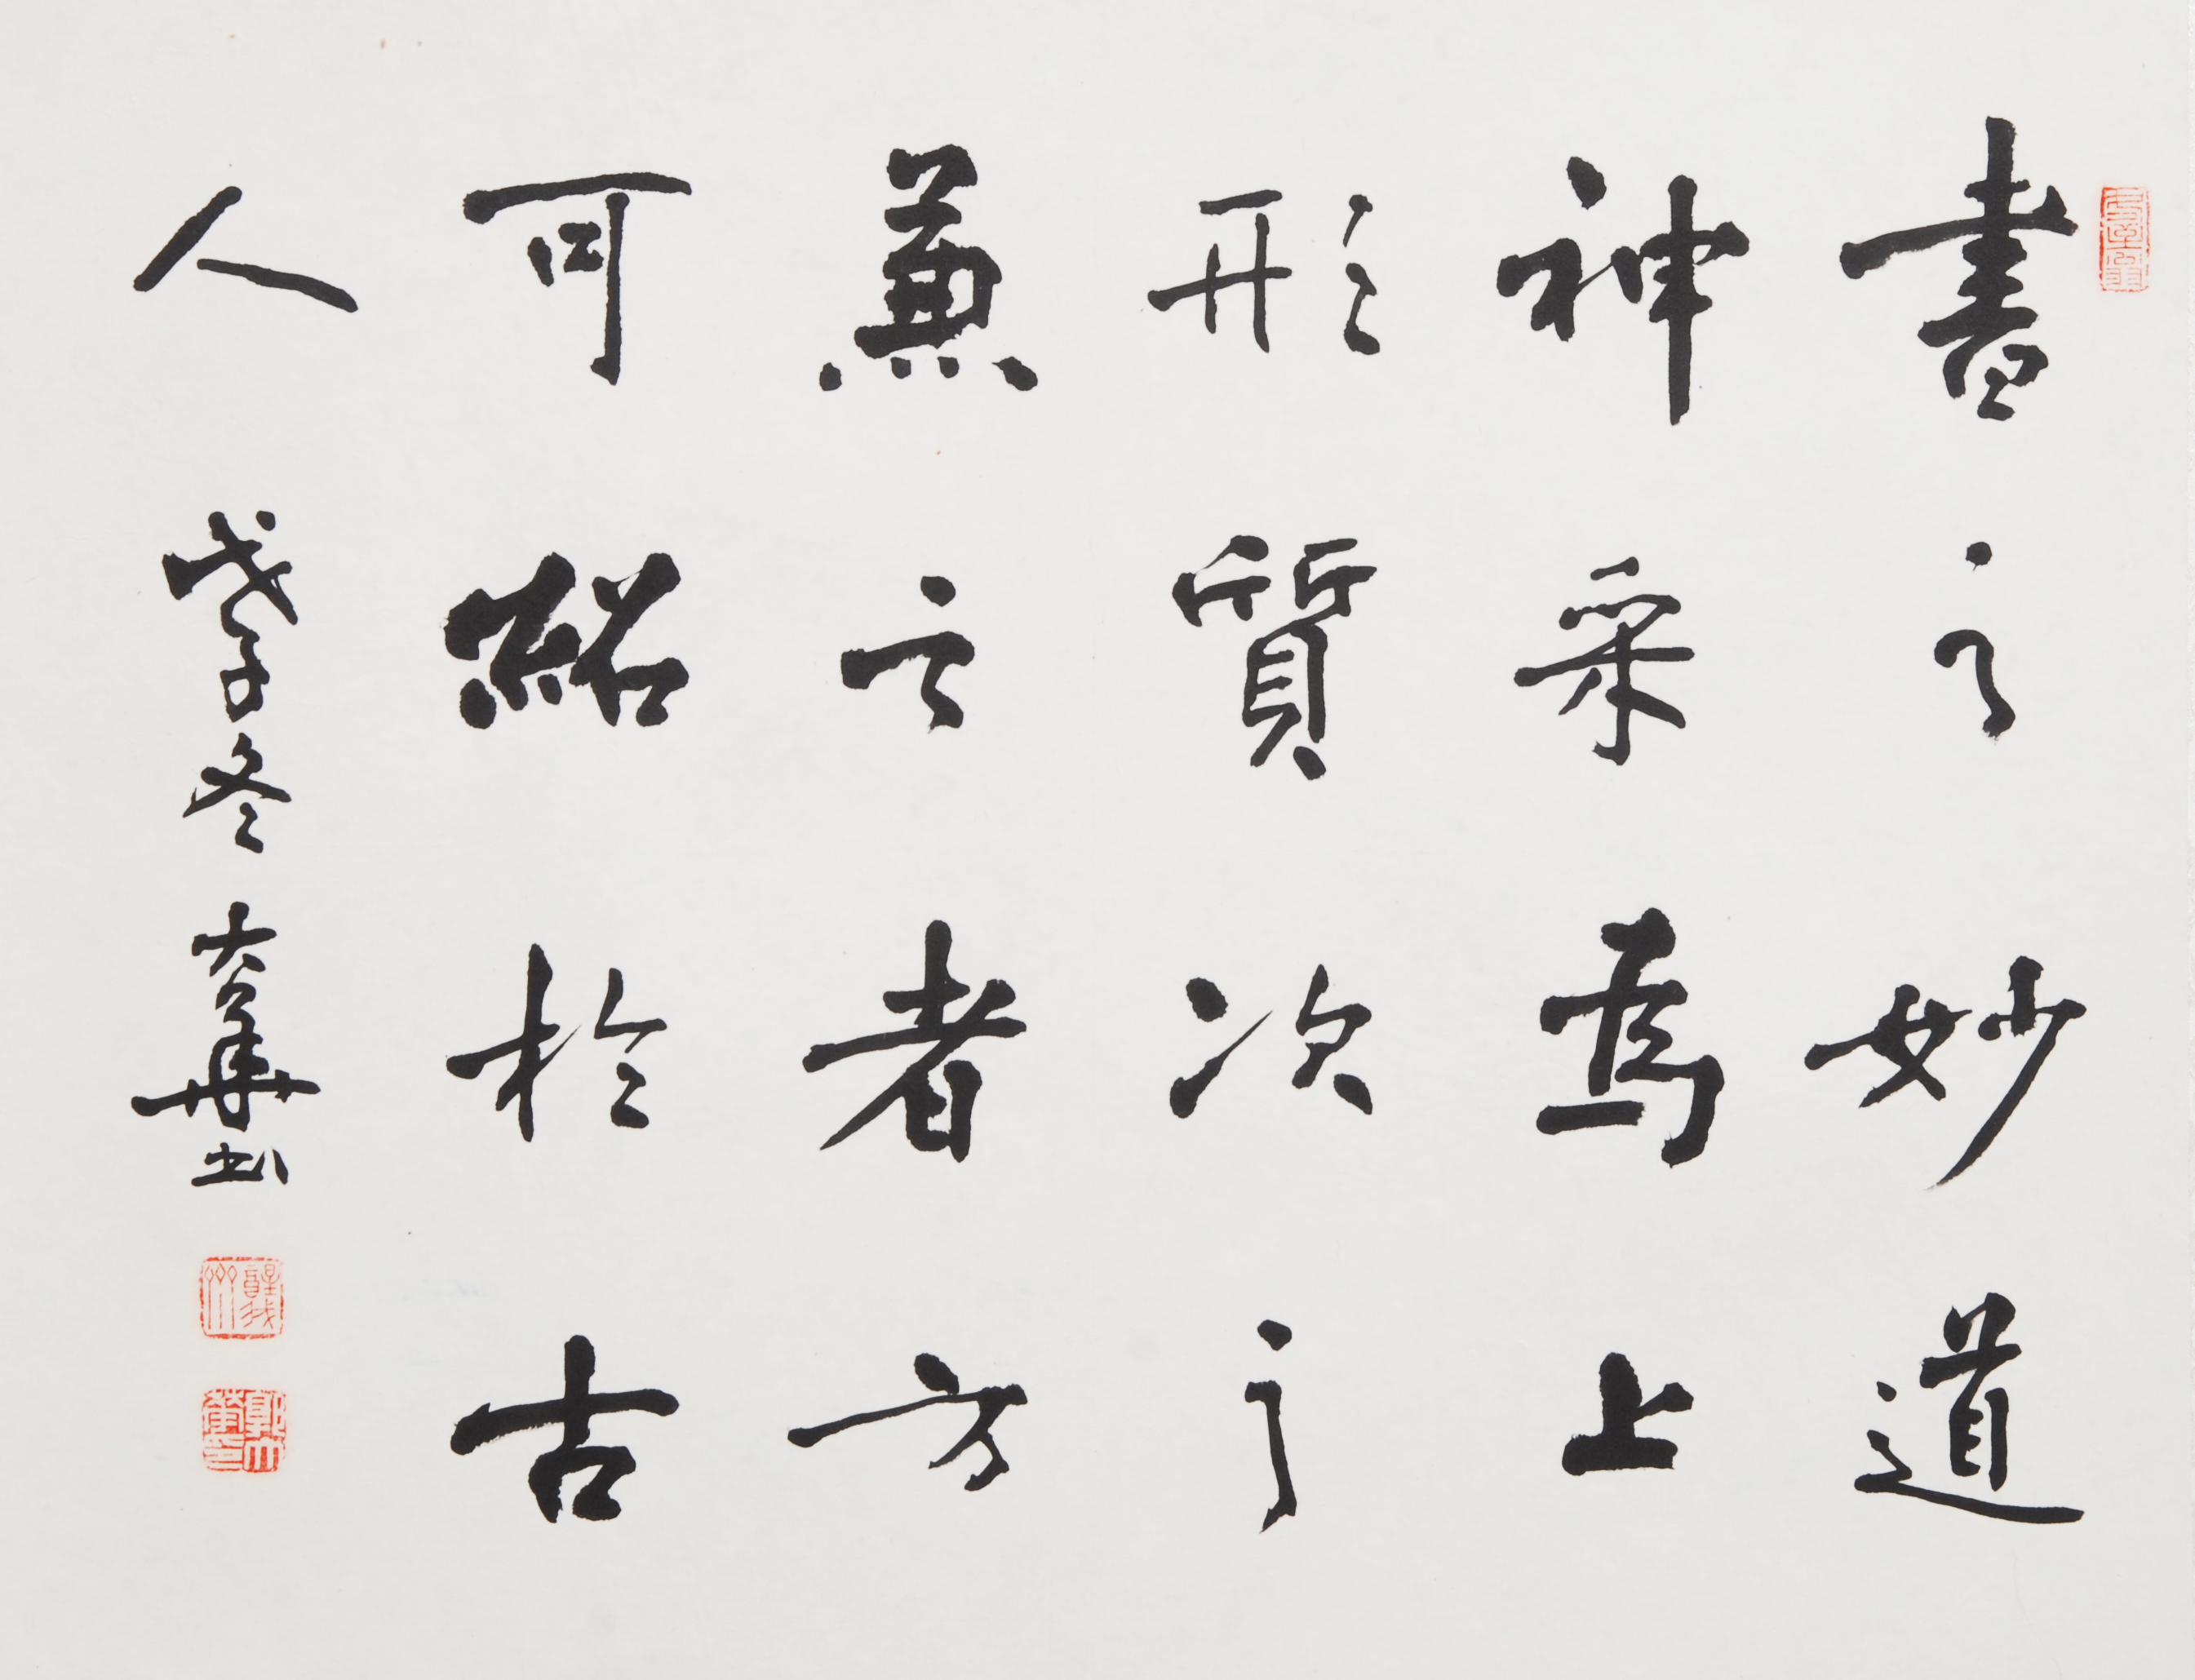 書之妙道
神采為上
形質次之
兼之者方
可紹於古
人
戊子冬 大華書